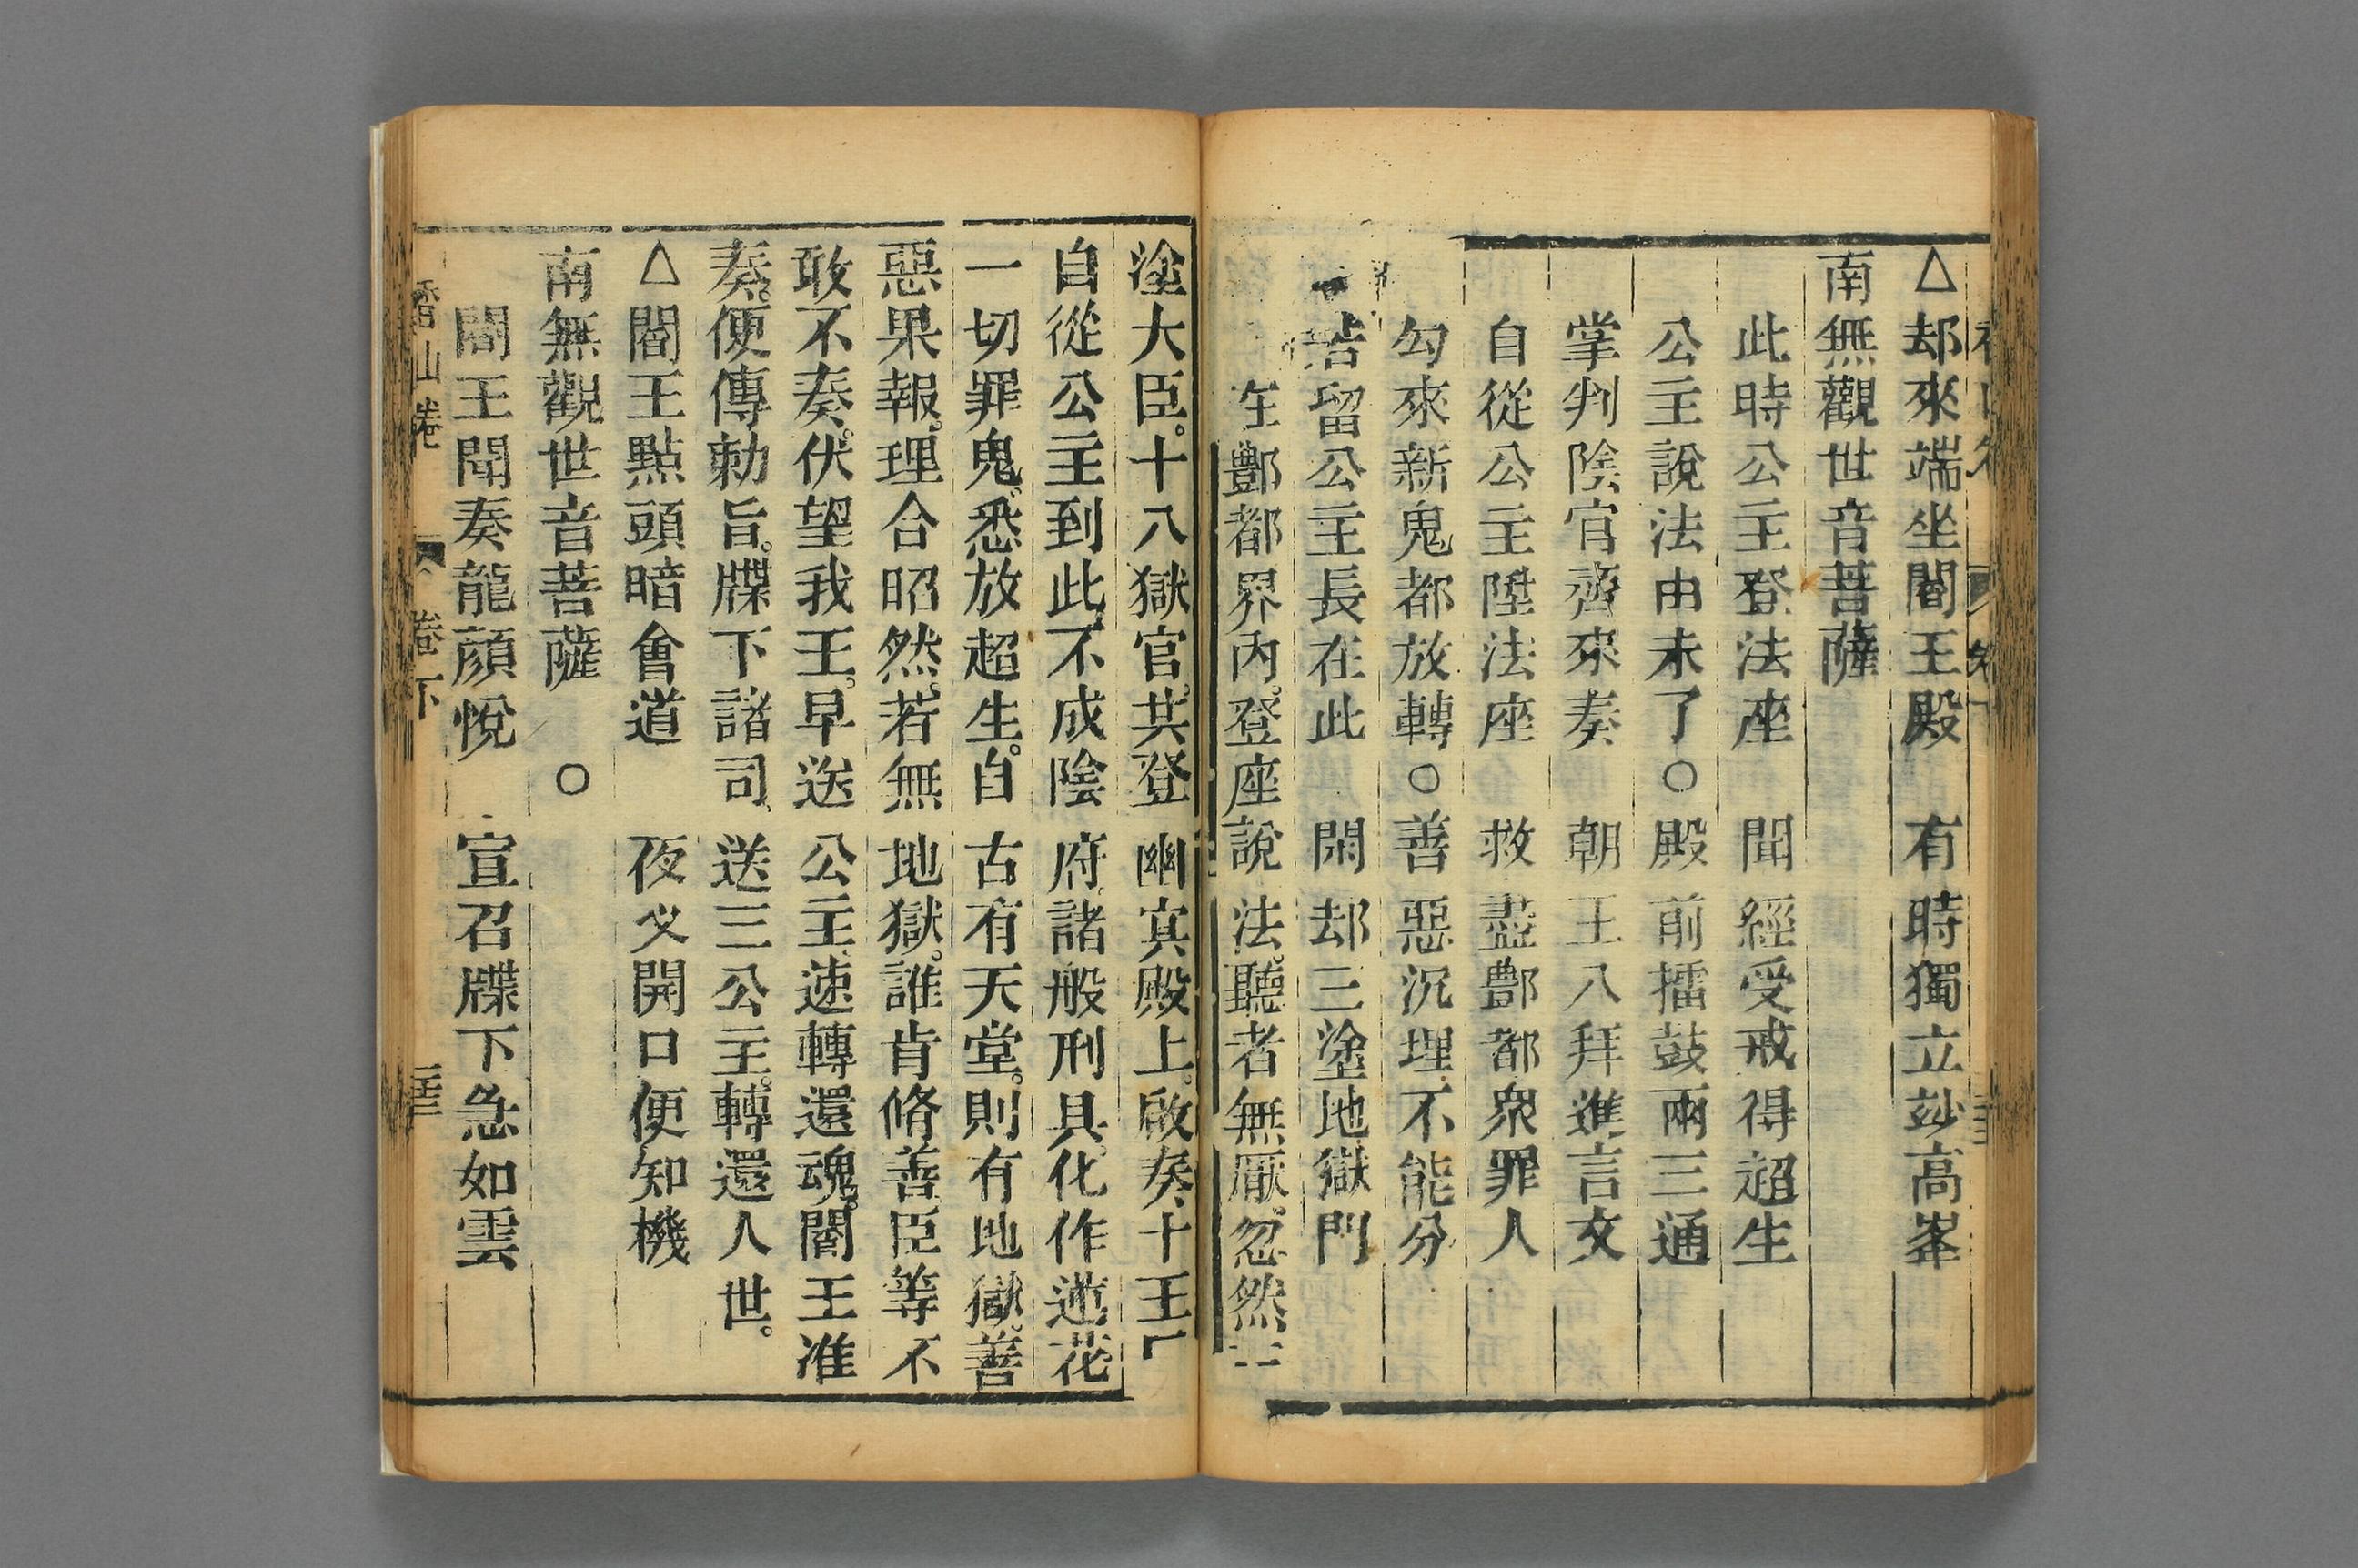 △却來端坐閻王殿　有時獨立竗高峯
南無觀世音菩薩
此時公主登法座　聞經受戒得超生
公主說法由未了○殿前擂鼓兩三通
掌判陰官齊來奏　朝王八拜進言文
自從公主陞法座　救盡酆都衆罪人
勾來新鬼都放轉○善惡沉埋不能分
留公主長在此　閑却三塗地獄門
在酆都界內。登座說法。聽者無厭。忽然
塗大臣。十八獄官。共登幽冥殿上。啟奏十王
自從公主到此。不成陰府諸般刑具。化作蓮花
一切罪鬼。悉放超生。自古有天堂。則有地獄。善
惡果報。理合昭然。若無地獄。誰肯脩善臣等不
敢不奏。伏望我王。早送公主。速轉還魂。閻王准
奏。便傳勅旨。牒下諸司、送三公主。轉還人世。
△閻王點頭暗會道　夜叉開口便知機
南無觀世音菩薩　○
閻王聞奏龍顔悅　宣召牒下急如雲
香山卷　卷下　三十三